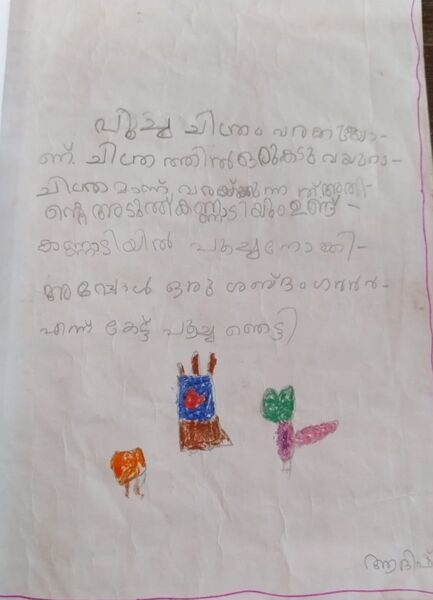 പൂച്ച ചിത്രം വരക്കുകയാ-
ണ്. ചിത്രത്തിൽ ഒരു കടുവയുടെ
ചിത്രമാണ് വരയ്ക്കുന്നത് അതി-
ന്റെ അടുത്ത് കണ്ണാടിയും ഉണ്ട് -
കണ്ണാടിയിൽ പൂച്ച നോക്കി -
അപ്പോൾ ഒരു ശബ്ദം
എന്ന് കേട്ട് പൂച്ച ഞെട്ടി